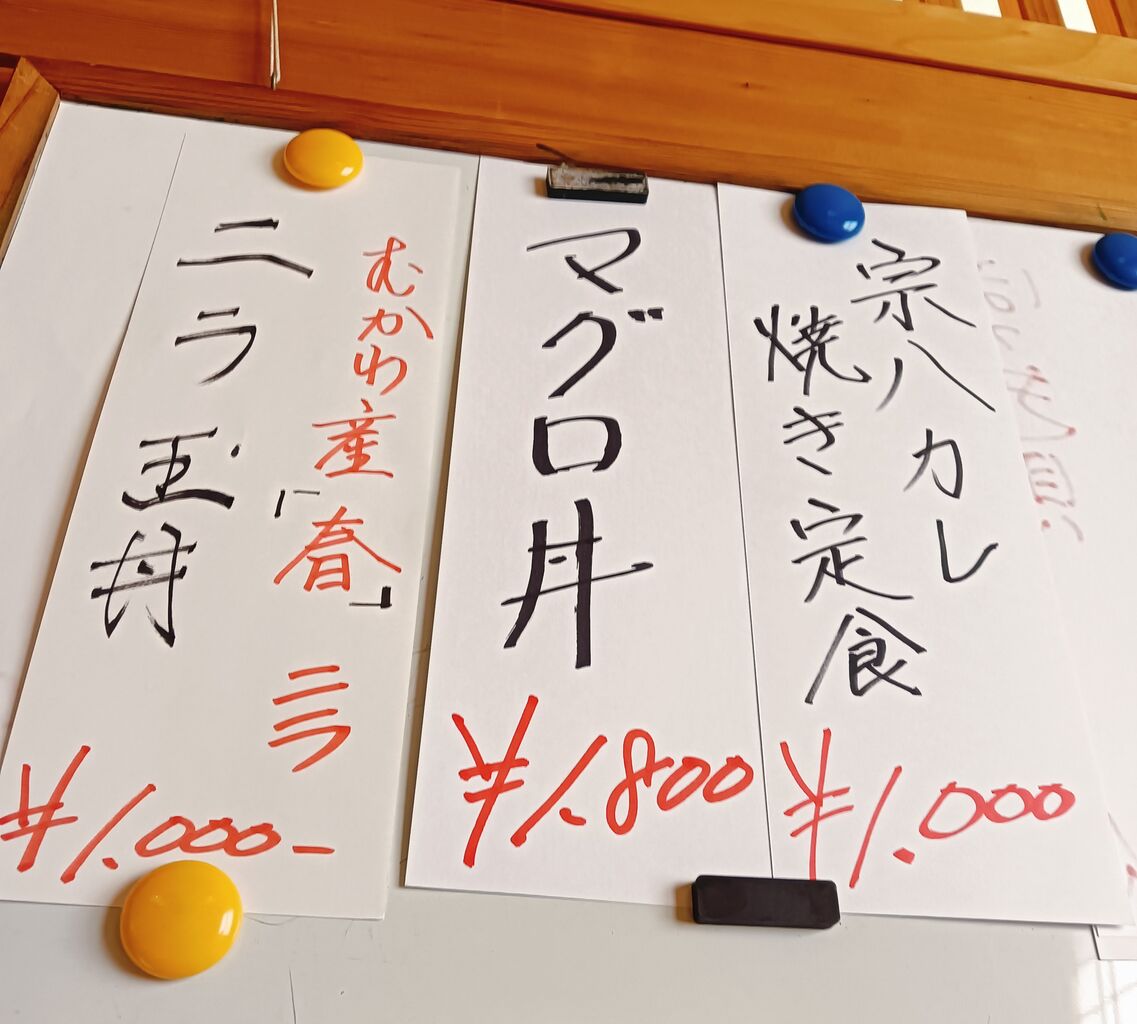 宗八カレ
焼き定食
¥1.000
マグロ丼
¥1.800
むかわ産「春」ニラ
ニラ玉丼
¥1.000-